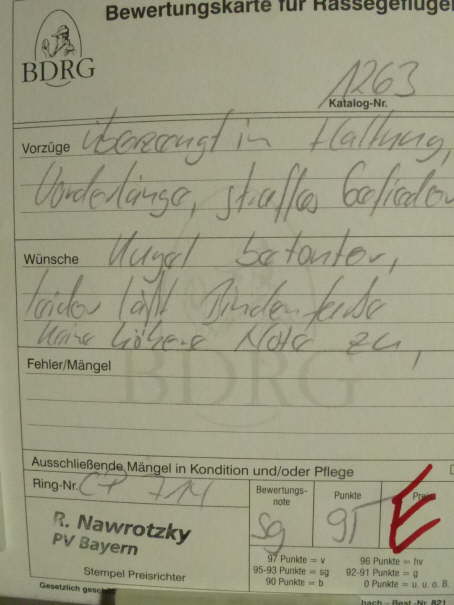 Bewertungskarte für Rassegeflügel
BDRG
1263
Katalog-Nr.
Vorzüge überzeugt in Haltung,
Vorderlänge, straffes Gefieder
Wünsche Kugel betonter,
leider läßt Bindenfarbe
keine höhere Note zu,
Fehler/Mängel
BDRG
Ausschließende Mängel in Kondition und/oder Pflege
Ring-Nr. CP 714
Bewertungs-
note
Punkte
Preis
sg
95
E
R. Nawrotzky
PV Bayern
Stempel Preisrichter
97 Punkte = v
96 Punkte = hv
95-93 Punkte = sg
92-91 Punkte = g
90 Punkte = b
0 Punkte = u. u. o. B.
Gesetzlich
bach - Best.-Nr. 821